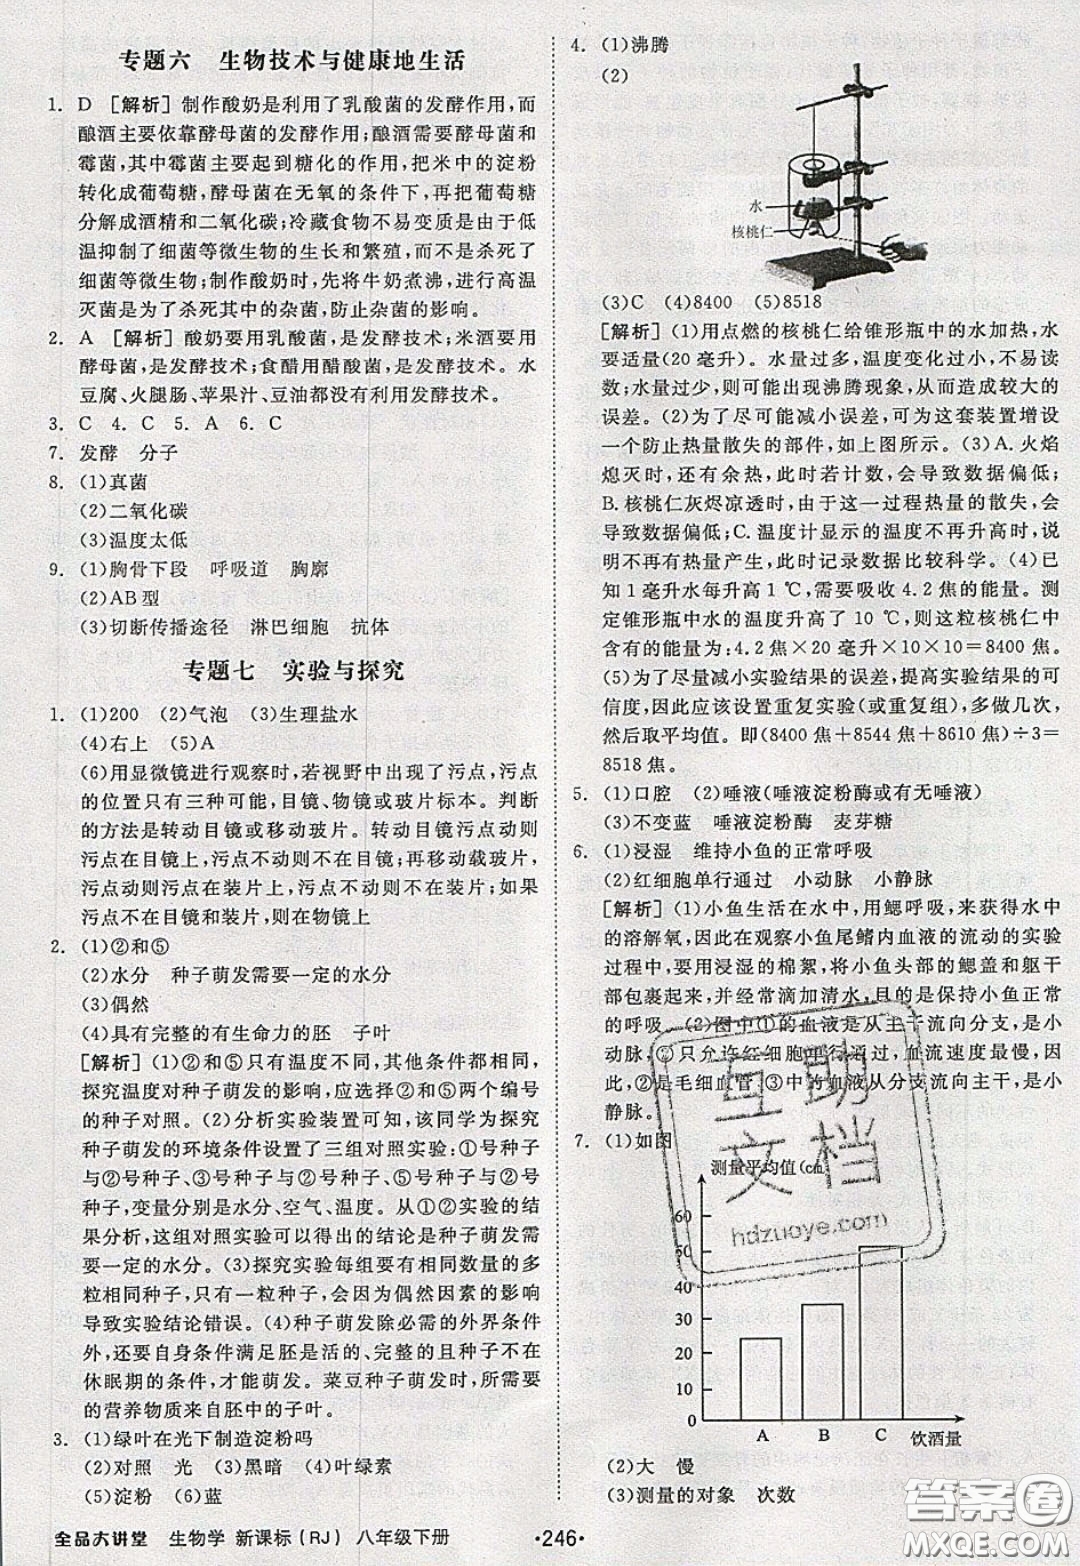 专题六 生物技术与健康地生活
1. D [解析] 制作酸奶是利用了乳酸菌的发酵作用,而
酿酒主要依靠酵母菌的发酵作用;酿酒需要酵母菌和
霉菌,其中霉菌主要起到糖化的作用,把米中的淀粉
转化成葡萄糖,酵母菌在无氧的条件下,再把葡萄糖
分解成酒精和二氧化碳;冷藏食物不易变质是由于低
温抑制了细菌等微生物的生长和繁殖,而不是杀死了
细菌等微生物;制作酸奶时,先将牛奶煮沸,进行高温
灭菌是为了杀死其中的杂菌,防止杂菌的影响。
2. A [解析] 酸奶要用乳酸菌,是发酵技术;米酒要用
酵母菌,是发酵技术;食醋用醋酸菌,是发酵技术。水
豆腐、火腿肠、苹果汁、豆油都没有用到发酵技术。
3. C 4. C 5. A 6. C
7. 发酵 分子
8. (1)真菌
(2)二氧化碳
(3)温度太低
9. (1)胸骨下段 呼吸道 胸廓
(2)AB型
(3)切断传播途径 淋巴细胞 抗体
专题七 实验与探究
1. (1)200 (2)气泡 (3)生理盐水
(4)右上 (5)A
(6)用显微镜进行观察时,若视野中出现了污点,污点
的位置只有三种可能,目镜、物镜或玻片标本。判断
的方法是:转动目镜或移动玻片。转动目镜污点动则
污点在目镜上,污点不动则不在目镜;再移动载玻片,
污点动则污点在装片上,污点不动则不在装片;如果
污点不在目镜和装片,则在物镜上
2. (1)②和⑤
(2)水分 种子萌发需要一定的水分
(3)偶然
(4)具有完整的有生命力的胚 子叶
[解析] (1)②和⑤只有温度不同,其他条件都相同,
探究温度对种子萌发的影响,应选择②和⑤两个编号
的种子对照。(2)分析实验装置可知,该同学为探究
种子萌发的环境条件设置了三组对照实验:①号种子
与②号种子、②号种子与③号种子、②号种子与⑤号
种子,变量分别是水分、空气、温度。从①②实验的结
果分析,这组对照实验可以得出的结论是种子萌发需
要一定的水分。(3)实验中每组要有相同数量的多
粒相同种子,只有一粒种子,会因为偶然因素的影响
导致实验结论错误。(4)种子萌发除必需的外界条件
外,还要自身条件满足胚是活的、完整的且种子不在
休眠期的条件,才能萌发。菜豆种子萌发时,所需要
的营养物质来自胚中的子叶。
3. (1)绿叶在光下制造淀粉吗
(2)对照 光 (3)黑暗 (4)叶绿素
(5)淀粉 (6)蓝
4. (1)沸腾
(2)
水
核桃仁
(3)C (4)8400 (5)8518
[解析] (1)用点燃的核桃仁给锥形瓶中的水加热,水
要适量(20毫升)。水量过多,温度变化过小,不易读
数;水量过少,则可能出现沸腾现象,从而造成较大的
误差。(2)为了尽可能减小误差,可给这套装置增设
一个防止热量散失的部件,如上图所示。(3)A. 火焰
熄灭时,还有余热,此时若计数,会导致数据偏低;
B. 核桃仁灰烬凉透时,由于这一过程热量的散失,会
导致数据偏低;C. 温度计显示的温度不再升高时,说
明不再有热量产生,此时记录数据比较科学。(4)已
知1毫升水每升高1 ℃,需要吸收4.2焦的能量。测
定锥形瓶中水的温度升高了10 ℃,则这粒核桃仁中
含有的能量为:4.2焦×20毫升×10×10=8400焦。
(5)为了尽量减小实验结果的误差,提高实验结果的可
信度,因此应该设置重复实验(或重复组),多做几次,
然后取平均值。即(8400焦+8544焦+8610焦)÷3=
8518焦。
5. (1)口腔 (2)唾液(唾液淀粉酶或有无唾液)
(3)不变蓝 唾液淀粉酶 麦芽糖
6. (1)浸湿 维持小鱼的正常呼吸
(2)红细胞单行通过 小动脉 小静脉
[解析] (1)小鱼生活在水中,用鳃呼吸,来获得水中
的溶解氧,因此在观察小鱼尾鳍内血液的流动的实验
过程中,要用浸湿的棉絮,将小鱼头部的鳃盖和躯干
部包裹起来,并经常滴加清水,目的是保持小鱼正常
的呼吸。(2)图中①的血液是从主干流向分支,是小
动脉,②只允许红细胞单行通过,血流速度最慢,因
此②是毛细血管,③中的血液从分支流向主干,是小
静脉。
7. (1)如图
测量平均值(cm
60
50
40
30
20
10
0
A B C 饮酒量
(2)大 慢
(3)测量的对象 次数
互助
文档
hdzuoye.com
全品大讲堂 生物学 新课标(RJ) 八年级下册
·246·
答案圈
MXQE.COM